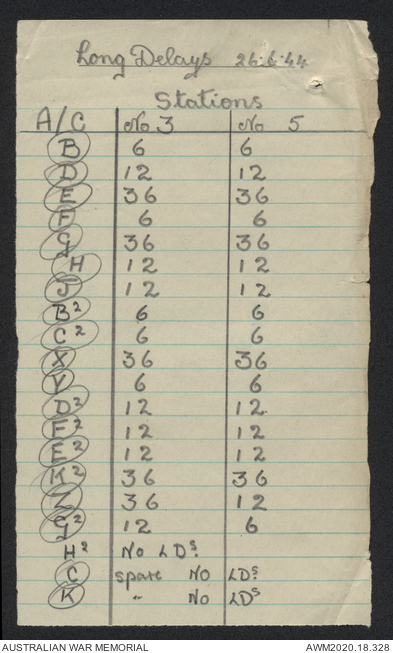 Long Delays 26.6.44
Stations
A/C No 3 No 5
B 6 6
D 12 12
E 36 36
F 6 6
G 36 36
H 12 12
J 12 12
B² 6 6
C² 6 6
X 36 36
Y 6 6
D² 12 12
F² 12 12
E² 12 12
K² 36 36
Z 36 12
G² 12 6
H² No LDˢ.
C spare No LDˢ.
K " No LDˢ
AUSTRALIAN WAR MEMORIAL AWM2020.18.328